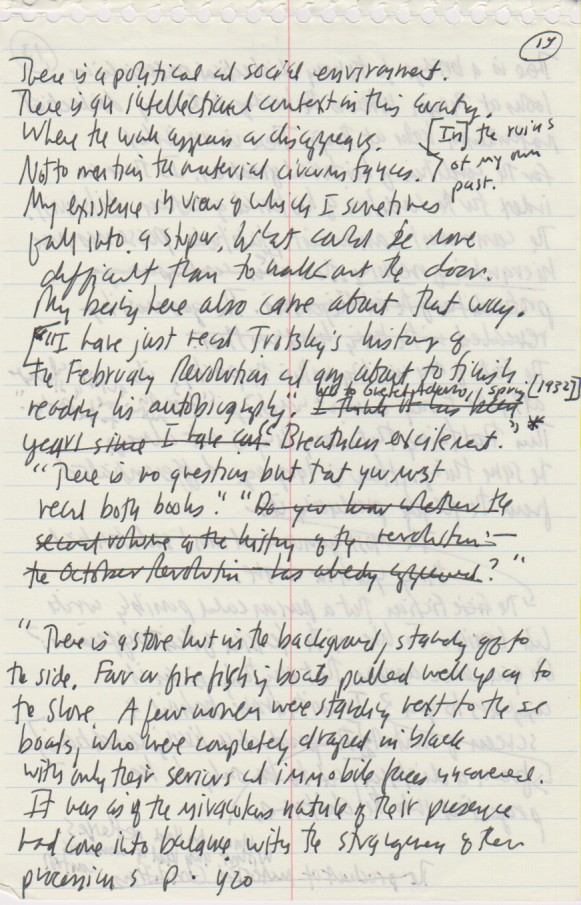 14
There is a political and social environment.
There is an intellectual context in this country.
Where the wall appears or disappears. [In] the ruins
Not to mention the material circumstances of my own
past.
My existence in view of which I sometimes
fall into a stupor, what could be more
difficult than to walk out the door.
My being here also came about that way.
["I have just read Trotsky's history of
the February Revolution and am about to finish
reading his autobiography" wrote to Gretel Adorno, spring [1932]]
I think it has been
years since I have such Breathless excitement." *
"There is no question but that you must
read both books." "Do you know whether the
second volume of the history of the revolution—
the October Revolution has already appeared?"
"There is a stone hut in the background, standing off to
the side. Four or five fishing boats pulled well up on to
the shore. A few women were standing next to these
boats, who were completely draped in black
with only their serious and immobile faces uncovered.
It was as if the miraculous nature of their presence
had come into balance with the strangeness of their
procession s p. 420